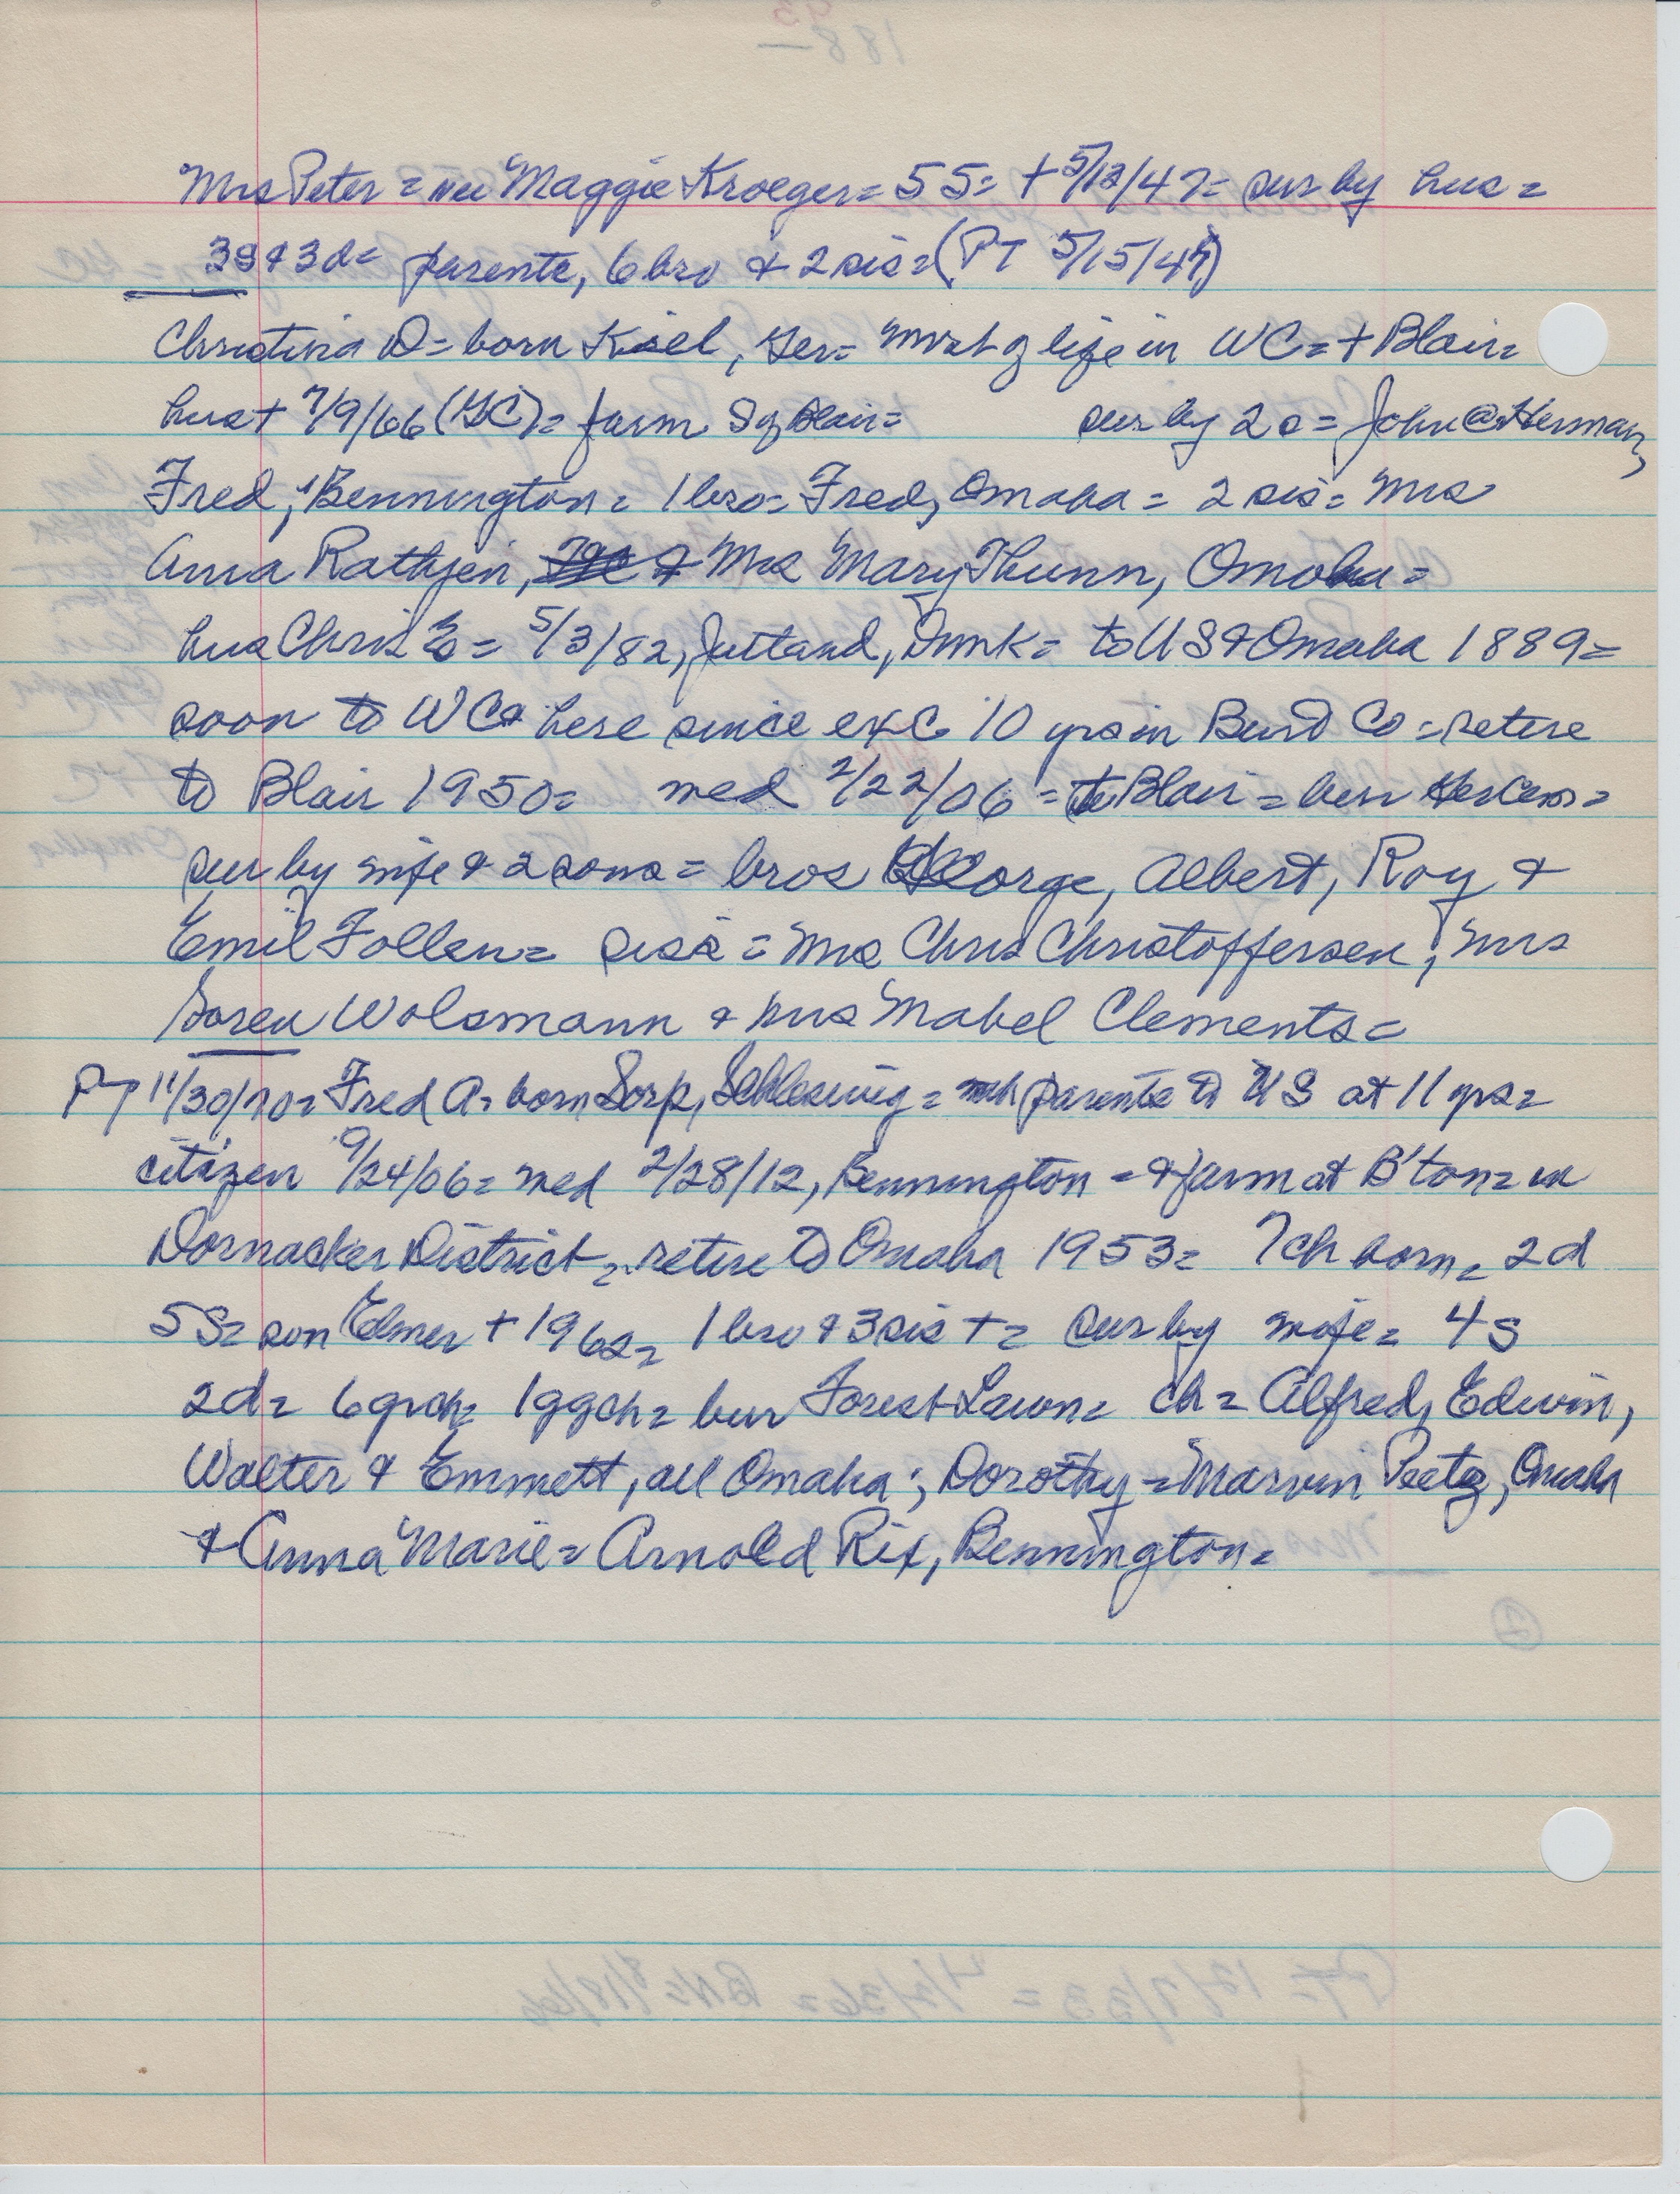 Mrs Peter = nee Maggie Kroeger = 55 = + 5/12/47 = sur by hus =
3S & 3d = parents, 6 bro & 2 sis = (PT 5/15/47)
Christina D = born Kiel, Ger = most of life in WC = + Blair =
hus + 7/9/66 (GC) = farm S of Blair = sur by 2 s = John @ Herman,
Fred, Bennington = 1 bro = Fred, Omaha = 2 sis = Mrs
Anna Rathjen, & Mrs Mary Thunn, Omaha =
hus Chris E = 5/3/82, Jutland, Dmk = to US & Omaha 1889 =
soon to WC & here since exc 10 yrs in Burt Co = retire
to Blair 1950 = med 2/22/06 = to Blair = bur Her Cem =
sur by wife & 2 sons = bros George, Albert, Roy &
Emil Follen = siss = Mrs Chris Christoffersen, Mrs
Soren Wolsmann & Mrs Mabel Clements =
PT 11/30/70 = Fred A = born Sorp, Schleswig = with parents to US at 11 yrs =
citizen 9/24/06 = med 2/28/12, Bennington = & farm at B'ton = in
Dornacker District = retire to Omaha 1953 = 7 ch born = 2d
5S = son Elmer + 1962 = 1 bro & 3 sis + = sur by wife = 4S
2d = 6 grch = 1 ggch = bur Forest Lawn = ch = Alfred, Edwin,
Walter & Emmett, all Omaha; Dorothy = Marvin Peetz, Omaha
& Anna Marie = Arnold Rix, Bennington =